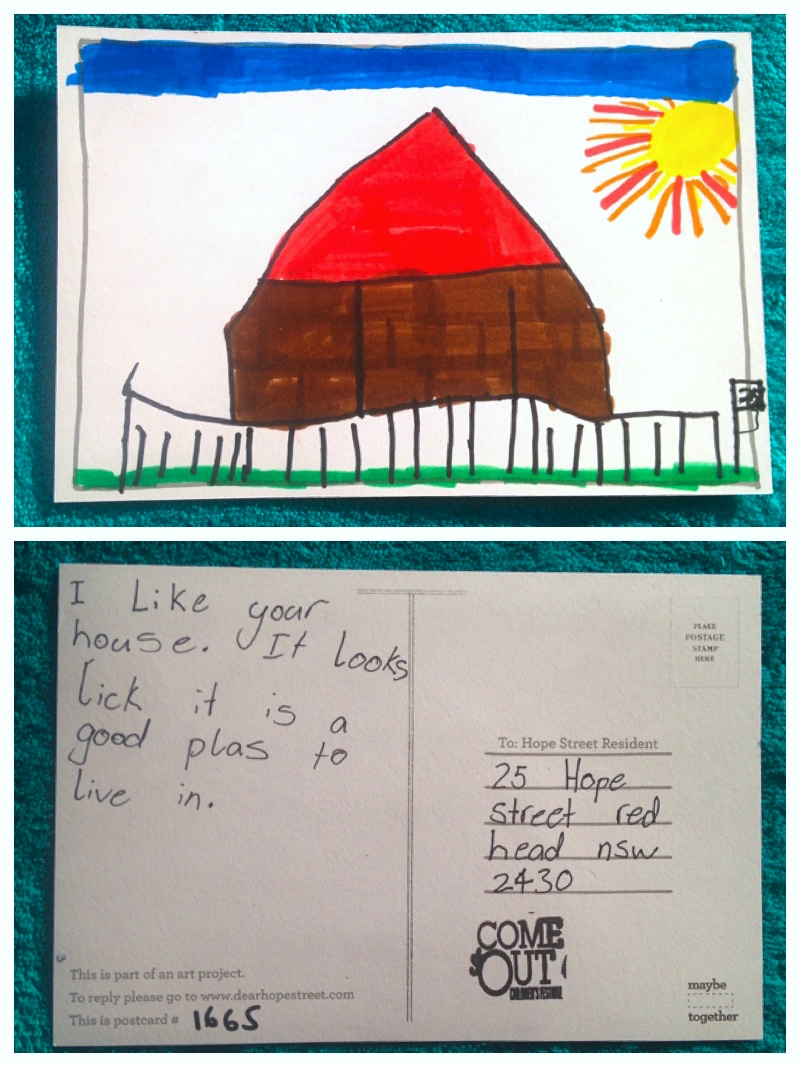 I Like your
house. It looks
lick it is a
good plas to
live in.
PLACE
POSTAGE
STAMP
HERE
To: Hope Street Resident
25 Hope
street red
head nsw
2430
COME
OUT
CHILDREN'S FESTIVAL
This is part of an art project.
To reply please go to www.dearhopestreet.com
This is postcard # 1665
maybe
together